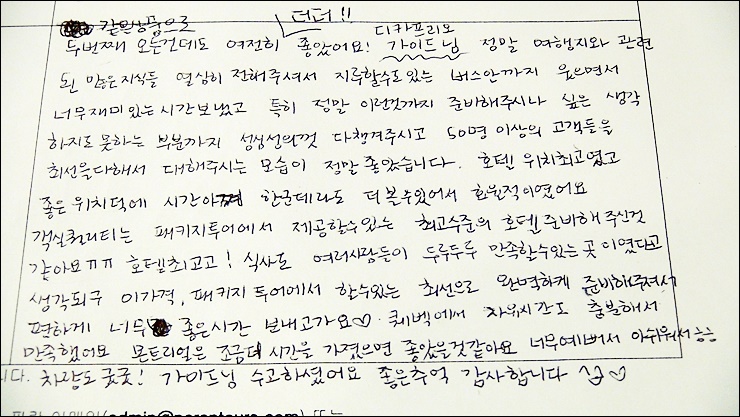 같은상품으로 더더!!
두번째 오는건데도 여전히 좋았어요! 디카프리오 가이드님 정말 여행지와 관련
된 많은지식들 열심히 전해주셔서 지루할수도있는 버스안까지 웃으면서
너무재미있는시간보냈고 특히 정말 이런것까지 준비해주시나 싶은 생각
하지도 못하는 부분까지 성심성의껏 다챙겨주시고 50명 이상의 고객들을
최선을다해서 대해주시는 모습이 정말좋았습니다. 호텔 위치최고였고
좋은위치덕에 시간아껴 한군데라도 더볼수있어서 효율적이였어요
객실퀄리티는 패키지투어에서 제공할수있는 최고수준의 호텔준비해주신것
같아요ㅠㅠ 호텔최고고! 식사도 여러사람들이 두루두루 만족할수있는곳이였다고
생각되구 이가격, 패키지투어에서 할수있는 최선으로 완벽하게 준비해주셔서
편하게 너무 좋은시간 보내고가요♡ 퀘벡에서 자유시간도 충분해서
만족했어요 몬트리얼은 조금더 시간을 가졌으면 좋았을것같아요 너무예뻐서 아쉬워서ㅎㅎ
니다. 차량도굿굿! 가이드님 수고하셨어요 좋은추억 감사합니다 ♡
(admin@parantours.com) 또는